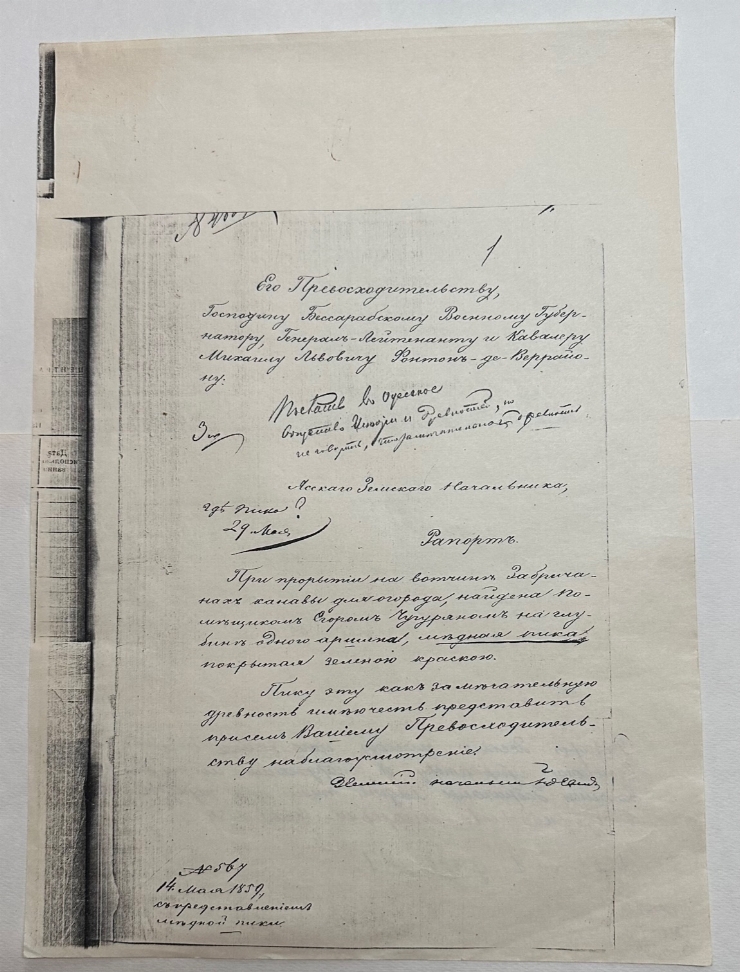 1
Его Превосходительству,
Господину Бессарабскому Военному Губер-
натору, Генералъ-Лейтенанту и Кавалеру
Михаилу Львовичу Фонтонъ-де-Веррайо-
ну.
въ Одесское
Общество Исторіи и Древностей,
Ясскаго Земскаго Начальника,
гдѣ пика?
29 Мая
Рапортъ.
При прорытіи на вотчинѣ Забрича-
нахъ канавы для огорода, найдена по-
мѣщикомъ Егоромъ Чугуряномъ на глу-
бинѣ одного аршина, мѣдная пика,
покрытая зеленою краскою.
Пику эту какъ замѣчательную
древность имѣю честь представить
при семъ Вашему Превосходитель-
ству на благоусмотреніе.
Земскій начальникъ
№ 567
14 Мая 1859,
съ представленіемъ
мѣдной пики.